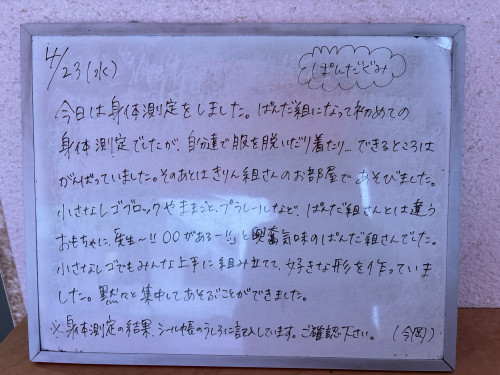 4/23(水)
ぱんだぐみ
今日は身体測定をしました。ぱんだ組になって初めての
身体測定でしたが、自分達で服を脱いだり着たり…できるところは
がんばっていました。そのあとはきりん組さんのお部屋であそびました。
小さなレゴブロックやままごと、プラレールなど、ぱんだ組さんとは違う
おもちゃに、「先生〜!!〇〇がある〜!!」と興奮気味のぱんだ組さんでした。
小さなレゴでもみんな上手に組み立てて、好きな形を作っていま
した。黙々と集中してあそぶことができました。
※身体測定の結果、シール帳のうしろに記入しています。ご確認下さい。(今岡)